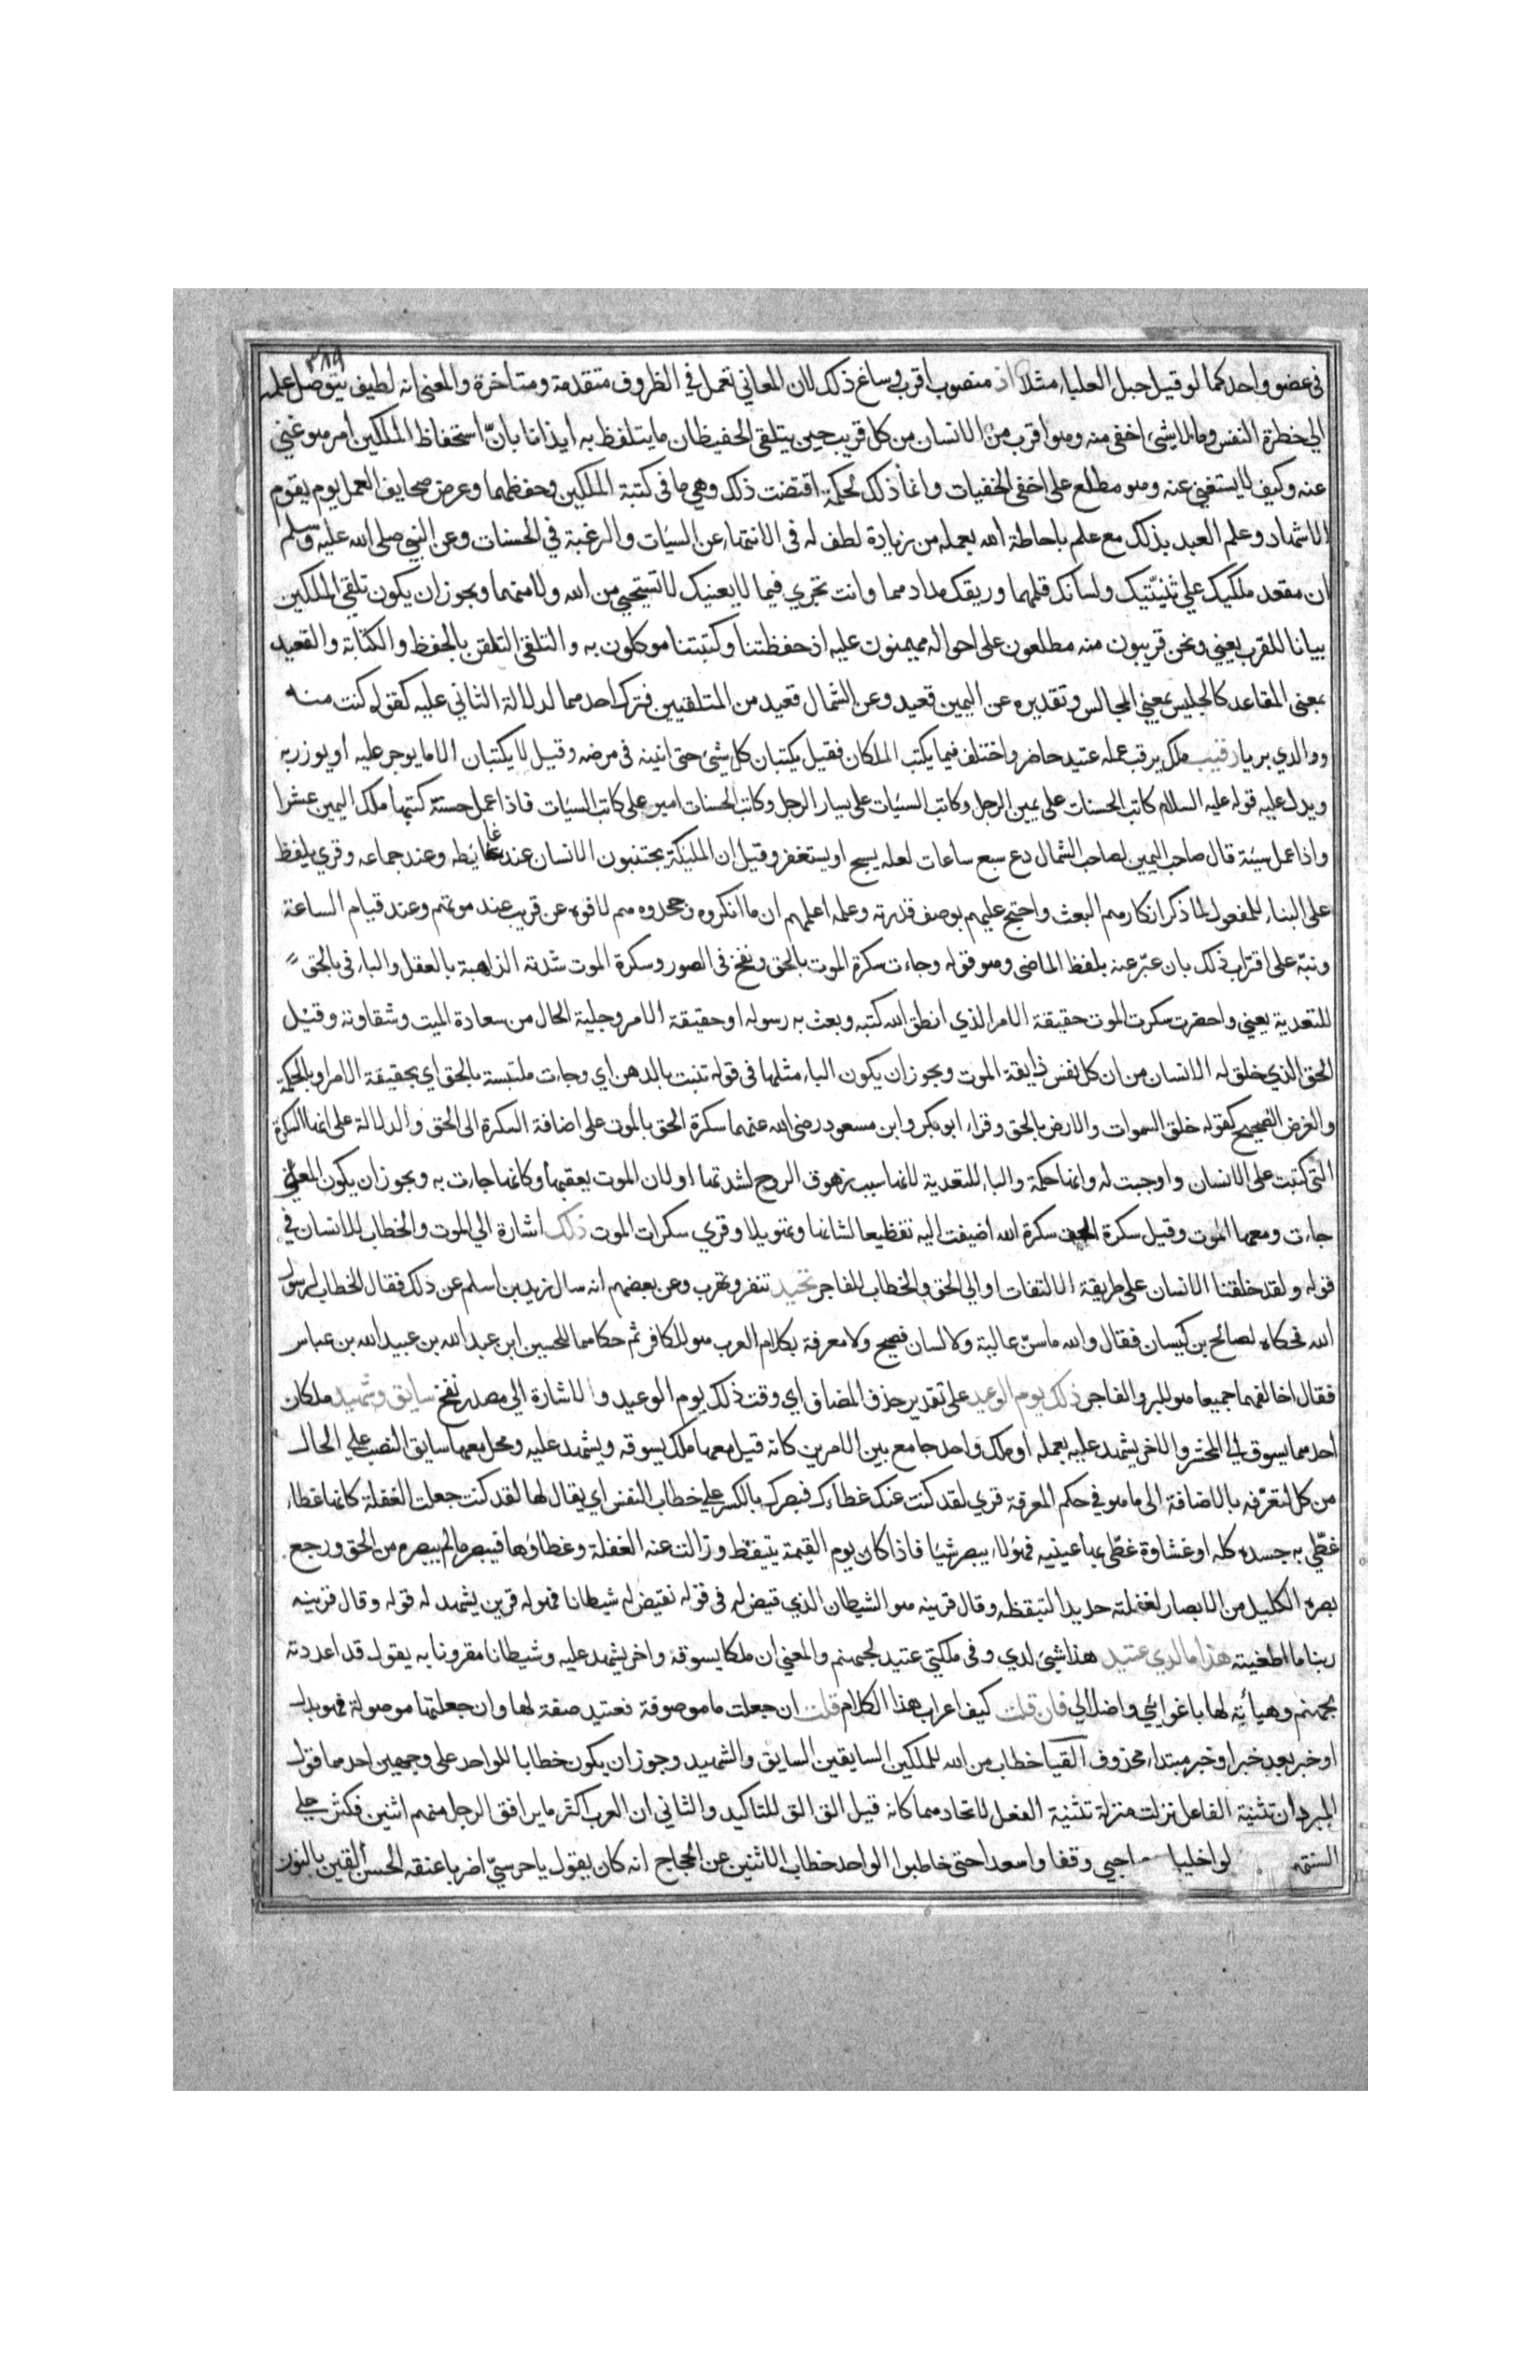 ٣٨٩
في عضو واحد كما لو قيل حبل العلياء مثلا اذ منصوب باقرب وساغ ذلك لان المعاني تعمل في الظروف متقدمة ومتاخرة والمعنى انه لطيف يتوصل علمه
الى خطرة النفس وما لا يشئ اخفى منه وهو اقرب من الانسان من كل قريب حين يتلقى الحفيظان ما يتلفظ به ايذانا بانّ استحفاظ الملكين امر هو غني
عنه وكيف لا يستغني عنه وهو مطلع على اخفى الخفيات وانما ذلك لحكمة اقتضت ذلك وهي ما في كتبة الملكين وحفظهما وعرض صحايف العمل يوم يقوم
الاشهاد وعلم العبد بذلك مع علم باحاطة الله بعمله من زيادة لطف له في الانتهاء عن السيئات والرغبة في الحسنات وعن النبي صلى الله عليه وسلم
ان مقعد ملكيك على ثنيّتيك ولسانك قلمهما وريقك مدادهما وانت تجري فيما لا يعنيك لا تستحيي من الله ولا منهما ويجوز ان يكون تلقي الملكين
بيانا للقرب يعني ونحن قريبون منه مطلعون على احواله مهيمنون عليه اذ حفظتنا وكتبتنا موكلون به والتلقي التلقن بالحفظ والكتابة والقعيد
بمعنى المقاعد كالجليس بمعنى المجالس وتقديره عن اليمين قعيد وعن الشمال قعيد من المتلقيين فترك احدهما لدلالة الثاني عليه كقوله كنت منه
ووالدي بريا رقيب ملك يرقب عمله عتيد حاضر واختلف فيما يكتب الملكان فقيل يكتبان كل شئ حتى انينه في مرضه وقيل لا يكتبان الا ما يوجر عليه او يوزر به
ويدل عليه قوله عليه السلام كاتب الحسنات على يمين الرجل وكاتب السيئات على يسار الرجل وكاتب الحسنات امير على كاتب السيئات فاذا عمل حسنة كتبها ملك اليمين عشرا
واذا عمل سيئة قال صاحب اليمين لصاحب الشمال دع سبع ساعات لعله يسبح او يستغفر وقيل ان المليكة يجتنبون الانسان عند غايطه وعند جماعه وقري يلفظ
على البناء للمفعول لما ذكر انكارهم البعث واحتج عليهم بوصف قدرته وعلمه اعلمهم ان ما انكروه وجحدوه هم لاقوه عن قريب عند موتهم وعند قيام الساعة
ونبّه على اقتراب ذلك بان عبّر عنه بلفظ الماضي وهو قوله وجاءت سكرة الموت بالحق ونفخ في الصور وسكرة الموت شدته الذاهبة بالعقل والباء في بالحق
للتعدية يعني واحضرت سكرت الموت حقيقة الامر الذي انطق الله كتبه وبعث به رسوله او حقيقة الامر وجلية الحال من سعادة الميت وشقاوته وقيل
الحق الذي خلق له الانسان من ان كل نفس ذايقة الموت ويجوز ان يكون الباء مثلها في قوله تنبت بالدهن اي وجاءت ملتبسة بالحق اي بحقيقة الامر او بالحكمة
والغرض الصحيح كقوله خلق السموات والارض بالحق وقراء ابو بكر وابن مسعود رضي الله عنهما سكرة الحق بالموت على اضافة السكرة الى الحق والدلالة على انها السكرة
التي كتبت على الانسان واوجبت له وانها حكمة والباء للتعدية لانها سبب زهوق الروح لشدتها او لان الموت يعقبها وكانها جاءت به ويجوز ان يكون المعنى
جاءت ومعها الموت وقيل سكرة الحق سكرة الله اضيفت اليه تفظيعا لشانها وتهويلا وقري سكرات الموت ذلك اشارة الى الموت والخطاب للانسان في
قوله ولقد خلقنا الانسان على طريقة الالتفات او الى الحق والخطاب للفاجر تحيد تنفر وتهرب وعن بعضهم انه سال زيد بن اسلم عن ذلك فقال الخطاب لرسول
الله فحكاه لصالح بن كيسان فقال والله ما سنّ عالية ولا لسان فصيح ولا معرفة بكلام العرب هو للكافر ثم حكاهما للحسين ابن عبد الله بن عبيد الله بن عباس
فقال اخالفهما جميعا هو للبر والفاجر ذلك يوم الوعيد على تقدير حذف المضاف اي وقت ذلك يوم الوعيد والاشارة الى مصدر نفخ سايق وشهيد ملكان
احدهما يسوق الى المحشر والاخر يشهد عليه بعمله او ملك واحد جامع بين الامرين كانه قيل معها ملك يسوقه ويشهد عليه ومحل معها سايق النصب على الحال
من كل لتعرّفه بالاضافة الى ما هو في حكم المعرفة قري لقد كنت عنك غطاءك فبصرك بالكسر على خطاب النفس اي يقال لها لقد كنت جعلت الغفلة كانها غطاء
غطّي به جسده كله او غشاوة غطّي بها عينيه فهو لا يبصر شيئا فاذا كان يوم القيمة يتيقظ وزالت عنه الغفلة وغطاؤها فيبصر ما لم يبصره من الحق ورجع
بصره الكليل من الابصار لغفلته حديدا لتيقظه وقال قرينه هو الشيطان الذي قيض له في قوله نقيض له شيطانا فهو له قرين يشهد له قوله وقال قرينه
ربنا ما اطغيته هذا ما لدي عتيد هذا شئ لدي وفي ملكتي عتيد لجهنم والمعنى ان ملكا يسوقه واخر يشهد عليه وشيطانا مقرونا به يقول قد اعددته
لجهنم وهيأته لها باغوائي واضلالي فان قلت كيف اعراب هذا الكلام قلت ان جعلت ما موصوفة فعتيد صفة لها وان جعلتها موصولة فهو بدل
او خبر بعد خبر او خبر مبتداء محذوف القيا خطاب من الله للملكين السايقين السايق والشهيد وجوز ان يكون خطابا للواحد على وجهين احدهما قول
المبرد ان تثنية الفاعل نزلت منزلة تثنية الفعل لاتحادهما كانه قيل الق الق للتاكيد والثاني ان العرب اكثر ما يرافق الرجل منهم اثنين فكثر على
السنتهم لوا خليليا احبي وقفا واسعدا حتى خاطبوا الواحد خطاب الاثنين عن الحجاج انه كان يقول يا حرسيّ اضربا عنقه الحسن القين بالنون